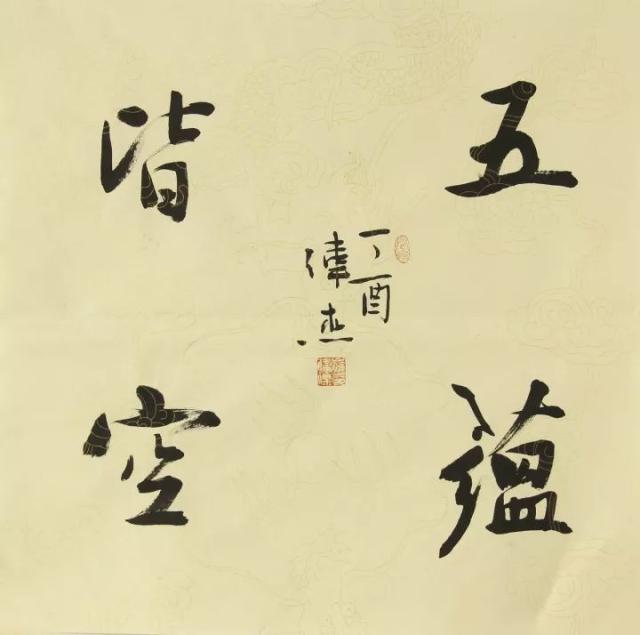 五蕴
皆空
丁酉
伟杰